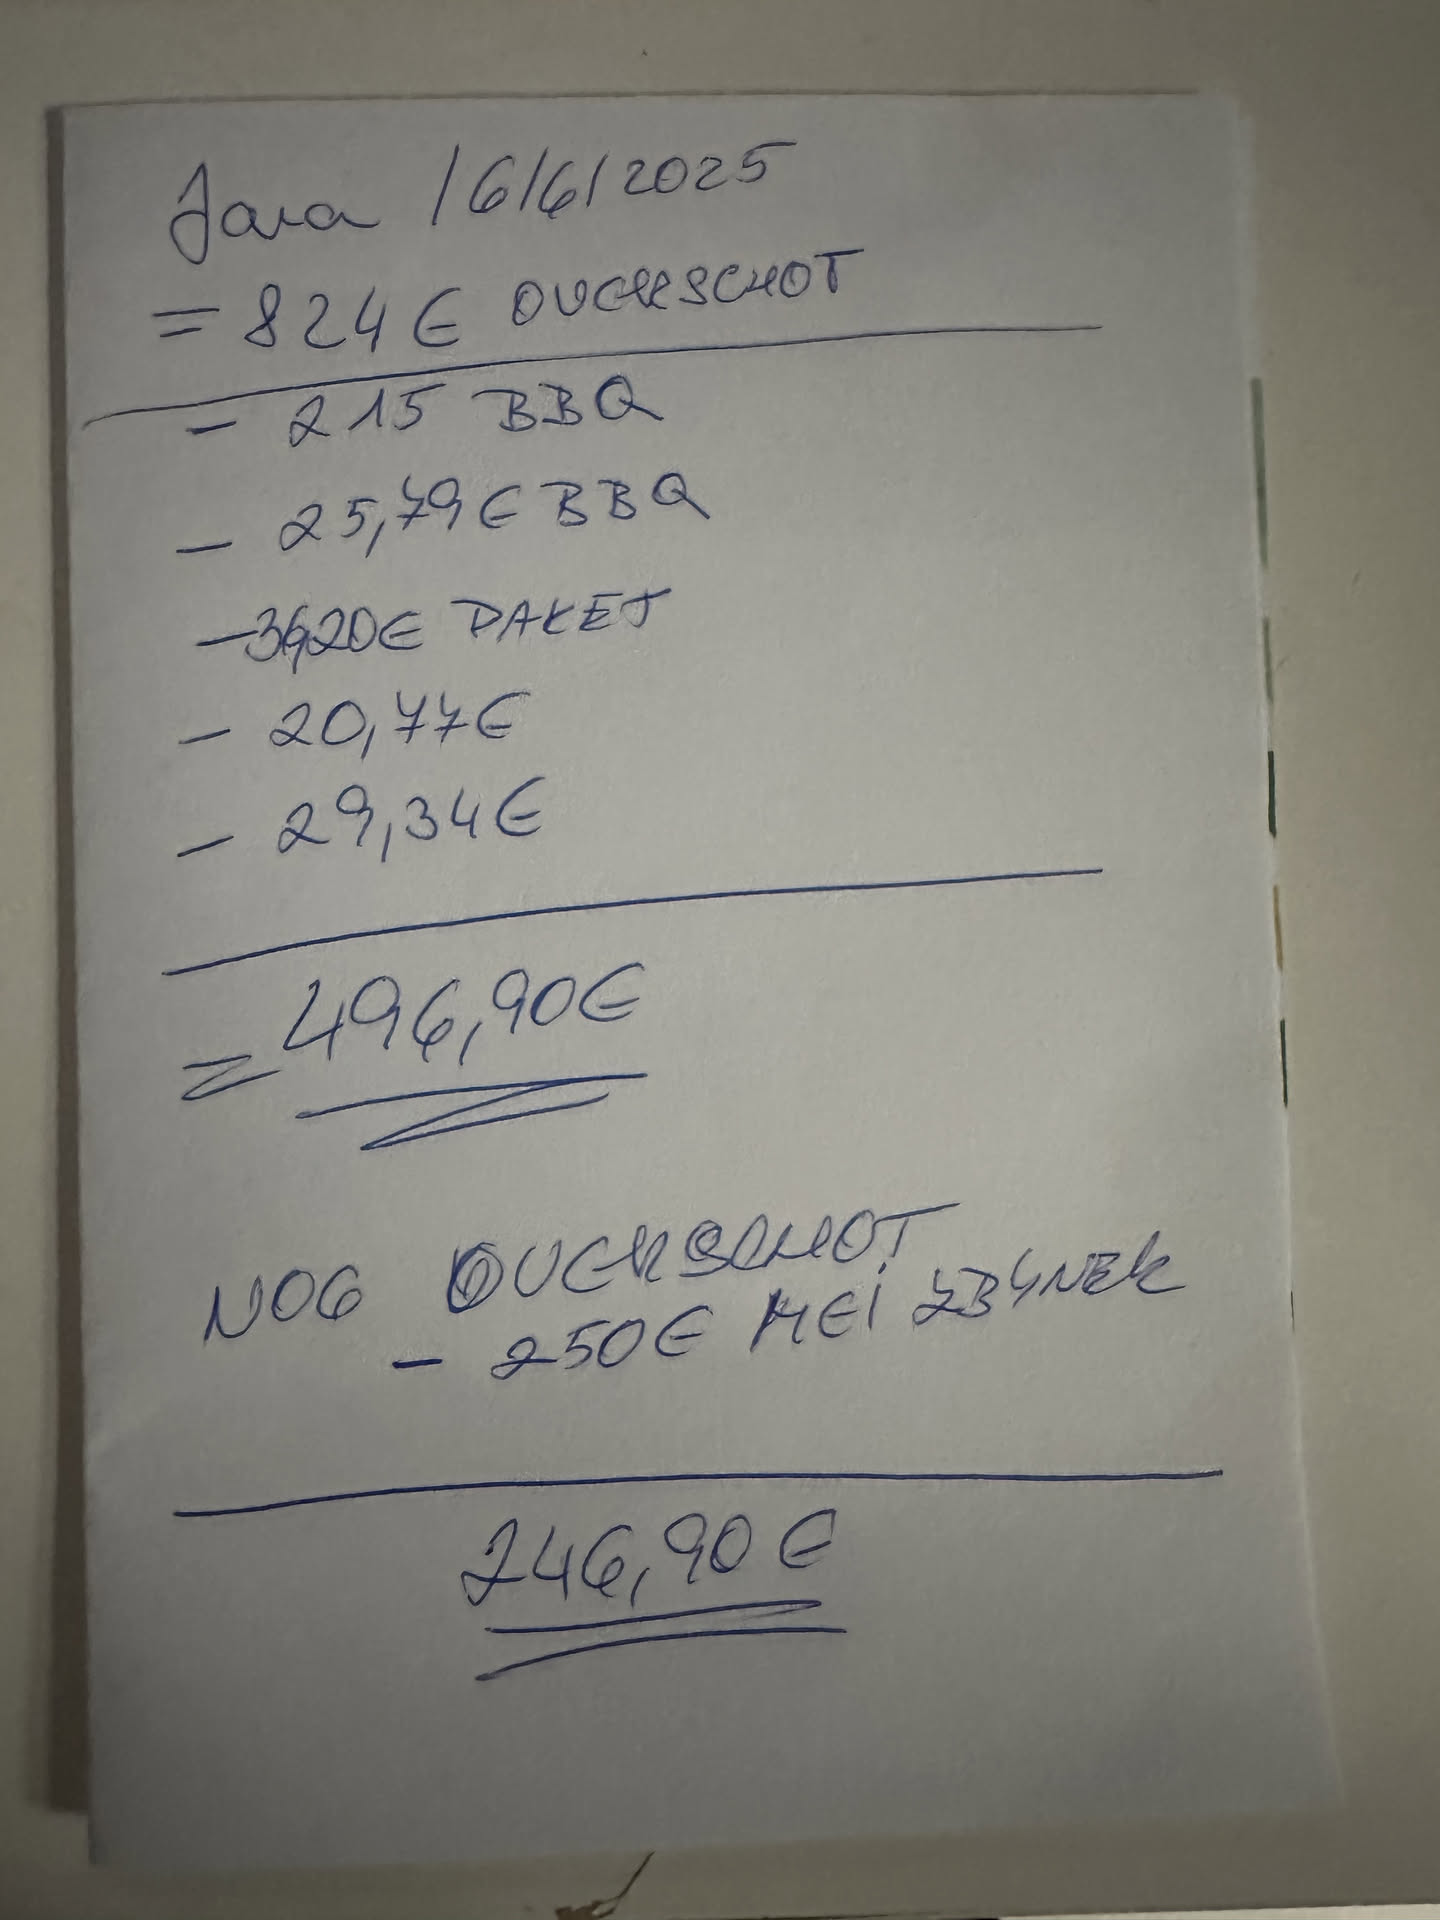 Jana 16/6/2025
= 824€ OVERSCHOT
- 215 BBQ
- 25,79€ BBQ
- 36,20€ PAKET
- 20,77€
- 29,34€
= 496,90€
NOG OVERSCHOT
- 250€ MEI ZBYNEK
246,90€